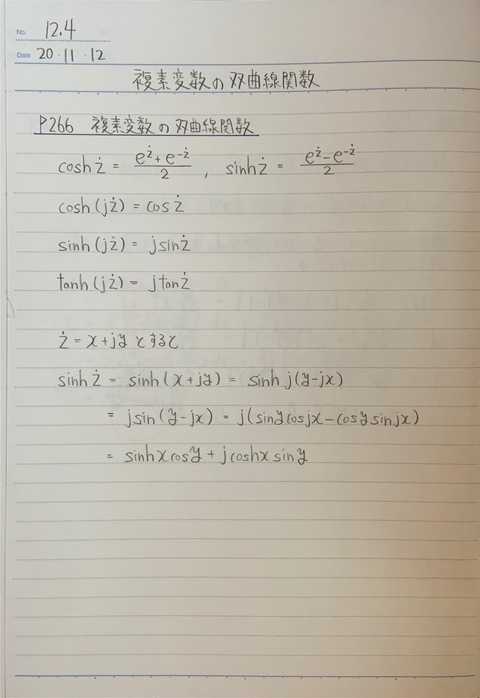 No. 12.4
Date 20・11・12
複素変数の双曲線関数
P266 複素変数の双曲線関数
cosh ż = (e^ż + e^-ż)/2 , sinh ż = (e^ż - e^-ż)/2
cosh (jż) = cos ż
sinh (jż) = j sin ż
tanh (jż) = j tan ż
ż = x + jy とすると
sinh ż = sinh (x + jy) = sinh j(y - jx)
= j sin (y - jx) = j(sin y cos jx - cos y sin jx)
= sinh x cos y + j cosh x sin y